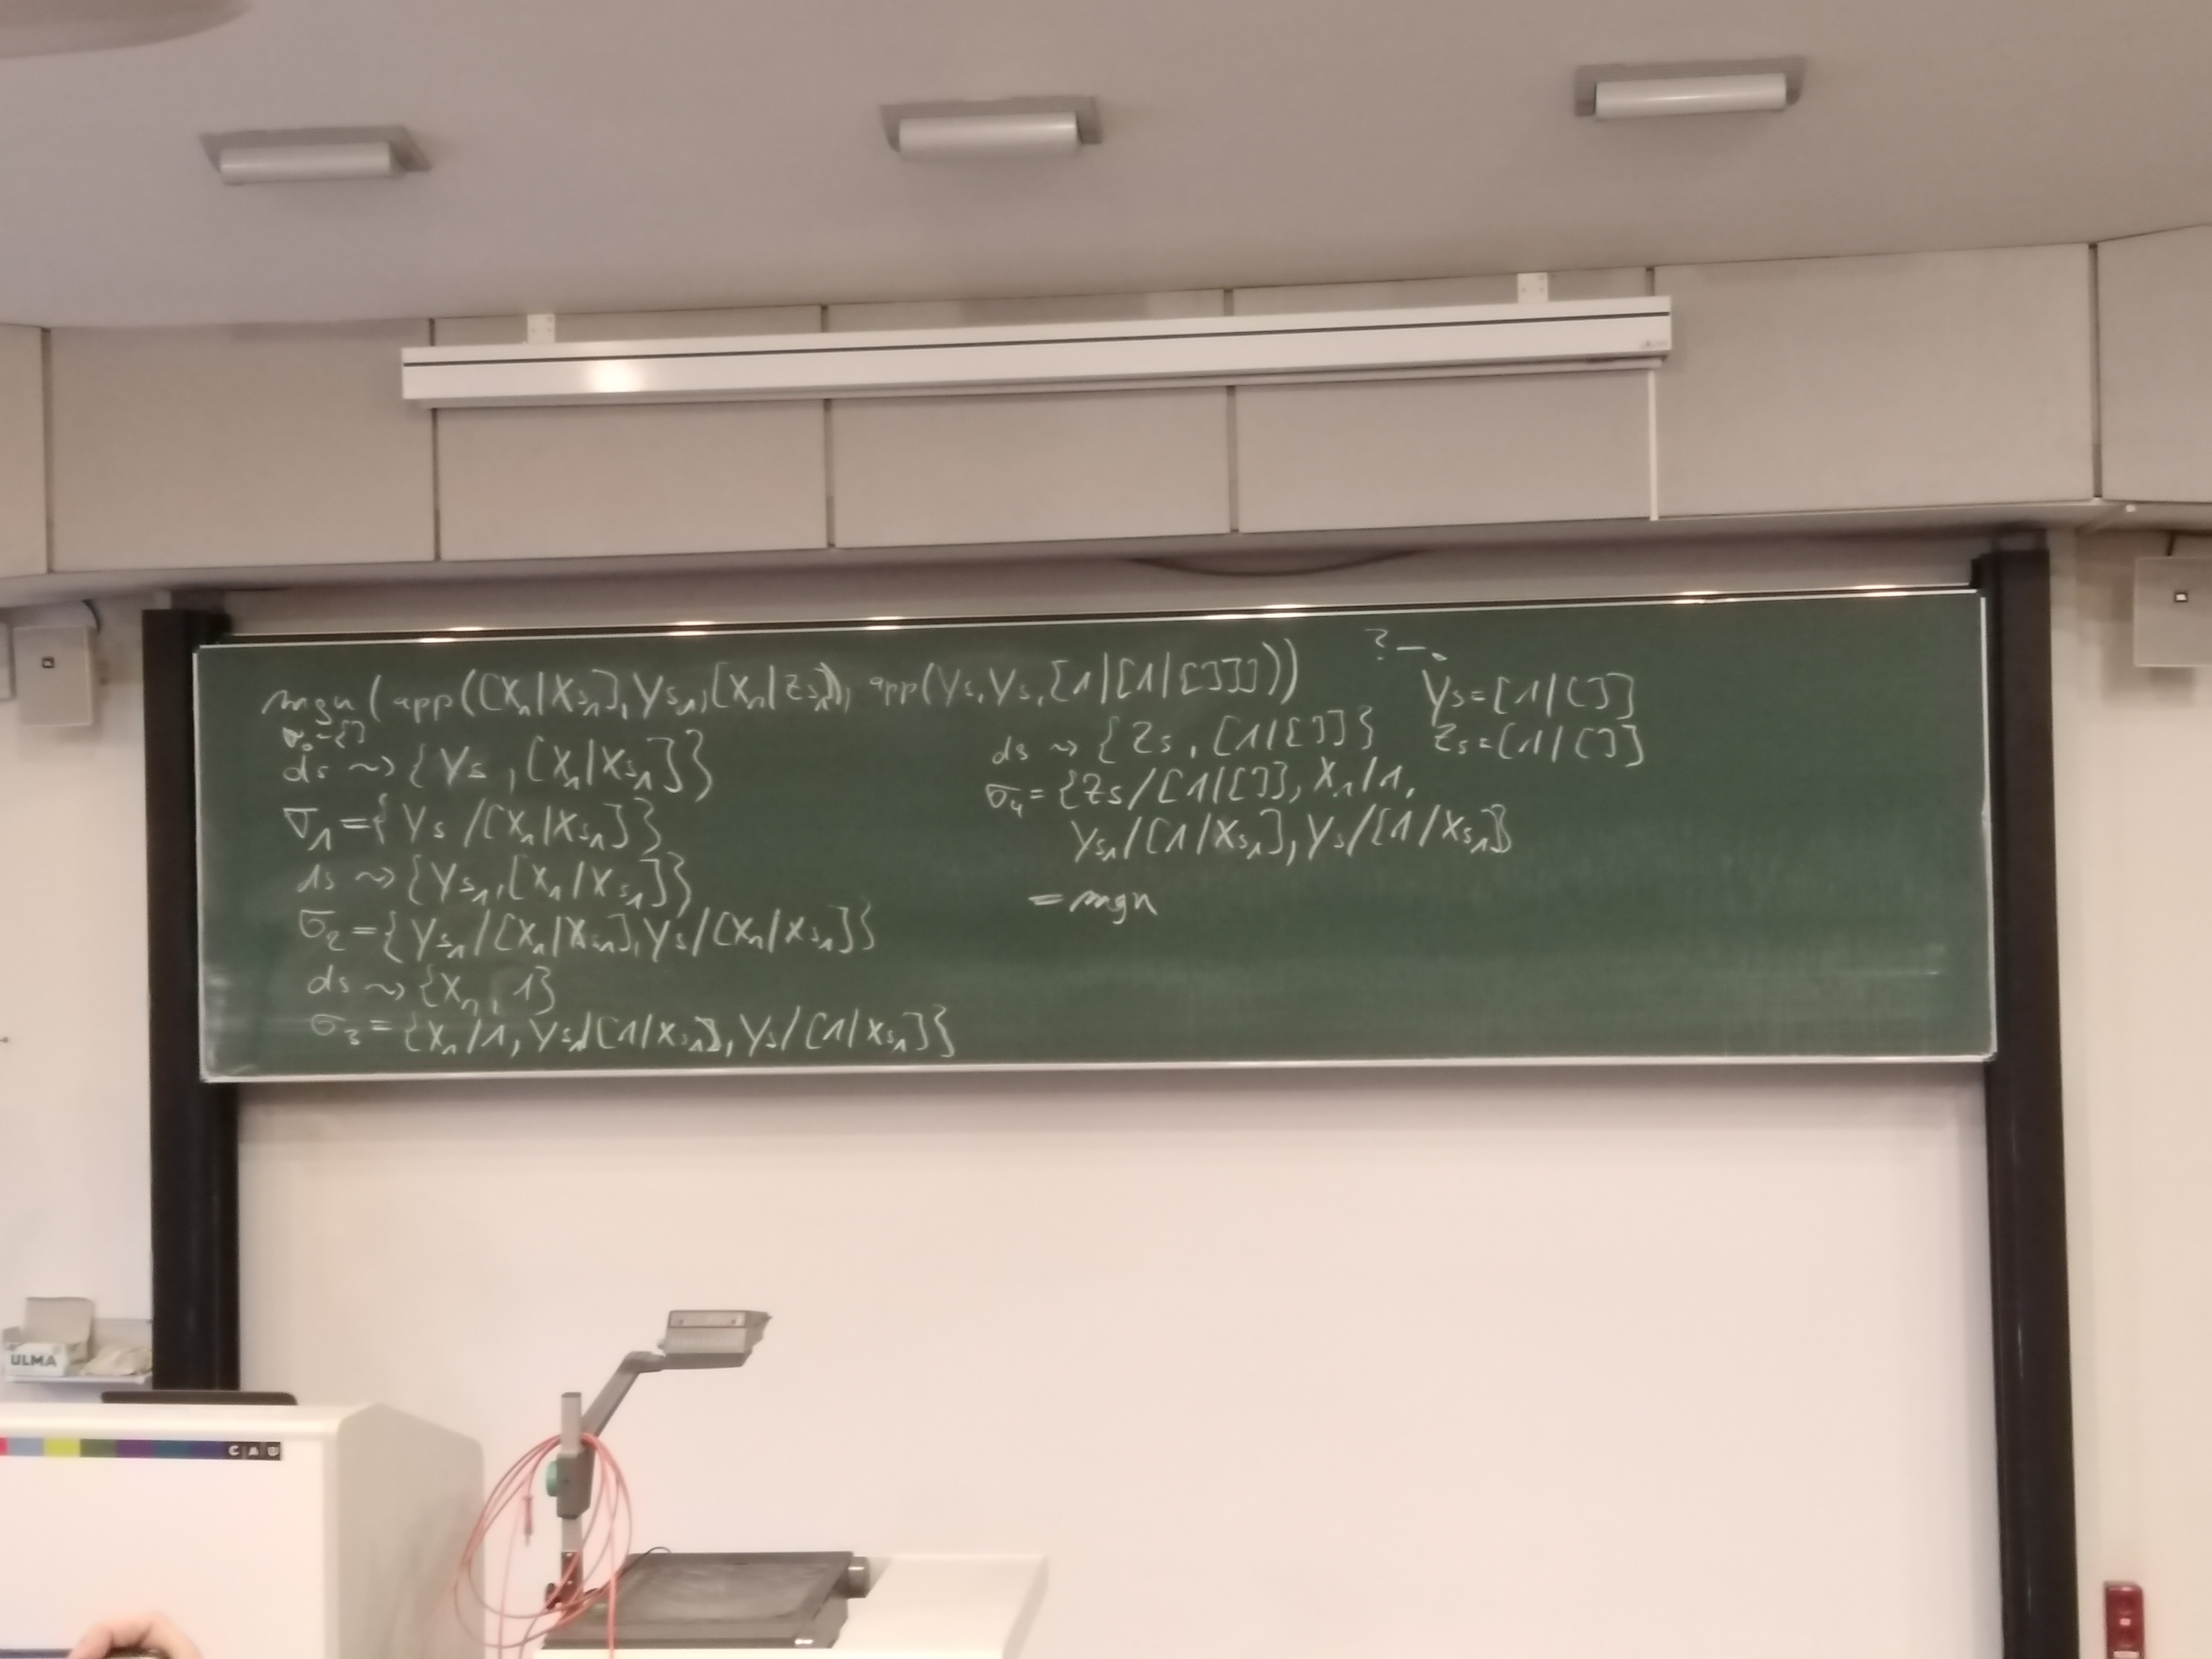 mgu(app([X₁|Xs₁],Ys₁,[X₁|Zs₁]), app(Ys,Ys,[1|[1|[]]]))
σ₀={}
ds ⇝ {Ys,[X₁|Xs₁]}
σ₁={Ys/[X₁|Xs₁]}
ds ⇝ {Ys₁,[X₁|Xs₁]}
σ₂={Ys₁/[X₁|Xs₁],Ys/[X₁|Xs₁]}
ds ⇝ {X₁,1}
σ₃={X₁/1,Ys₁/[1|Xs₁],Ys/[1|Xs₁]}
ds ⇝ {Zs,[1|[]]}
σ₄={Zs/[1|[]],X₁/1,
Ys₁/[1|Xs₁],Ys/[1|Xs₁]}
=mgu
?-.
Ys=[1|[]]
Zs=[1|[]]
ULMA
CAU